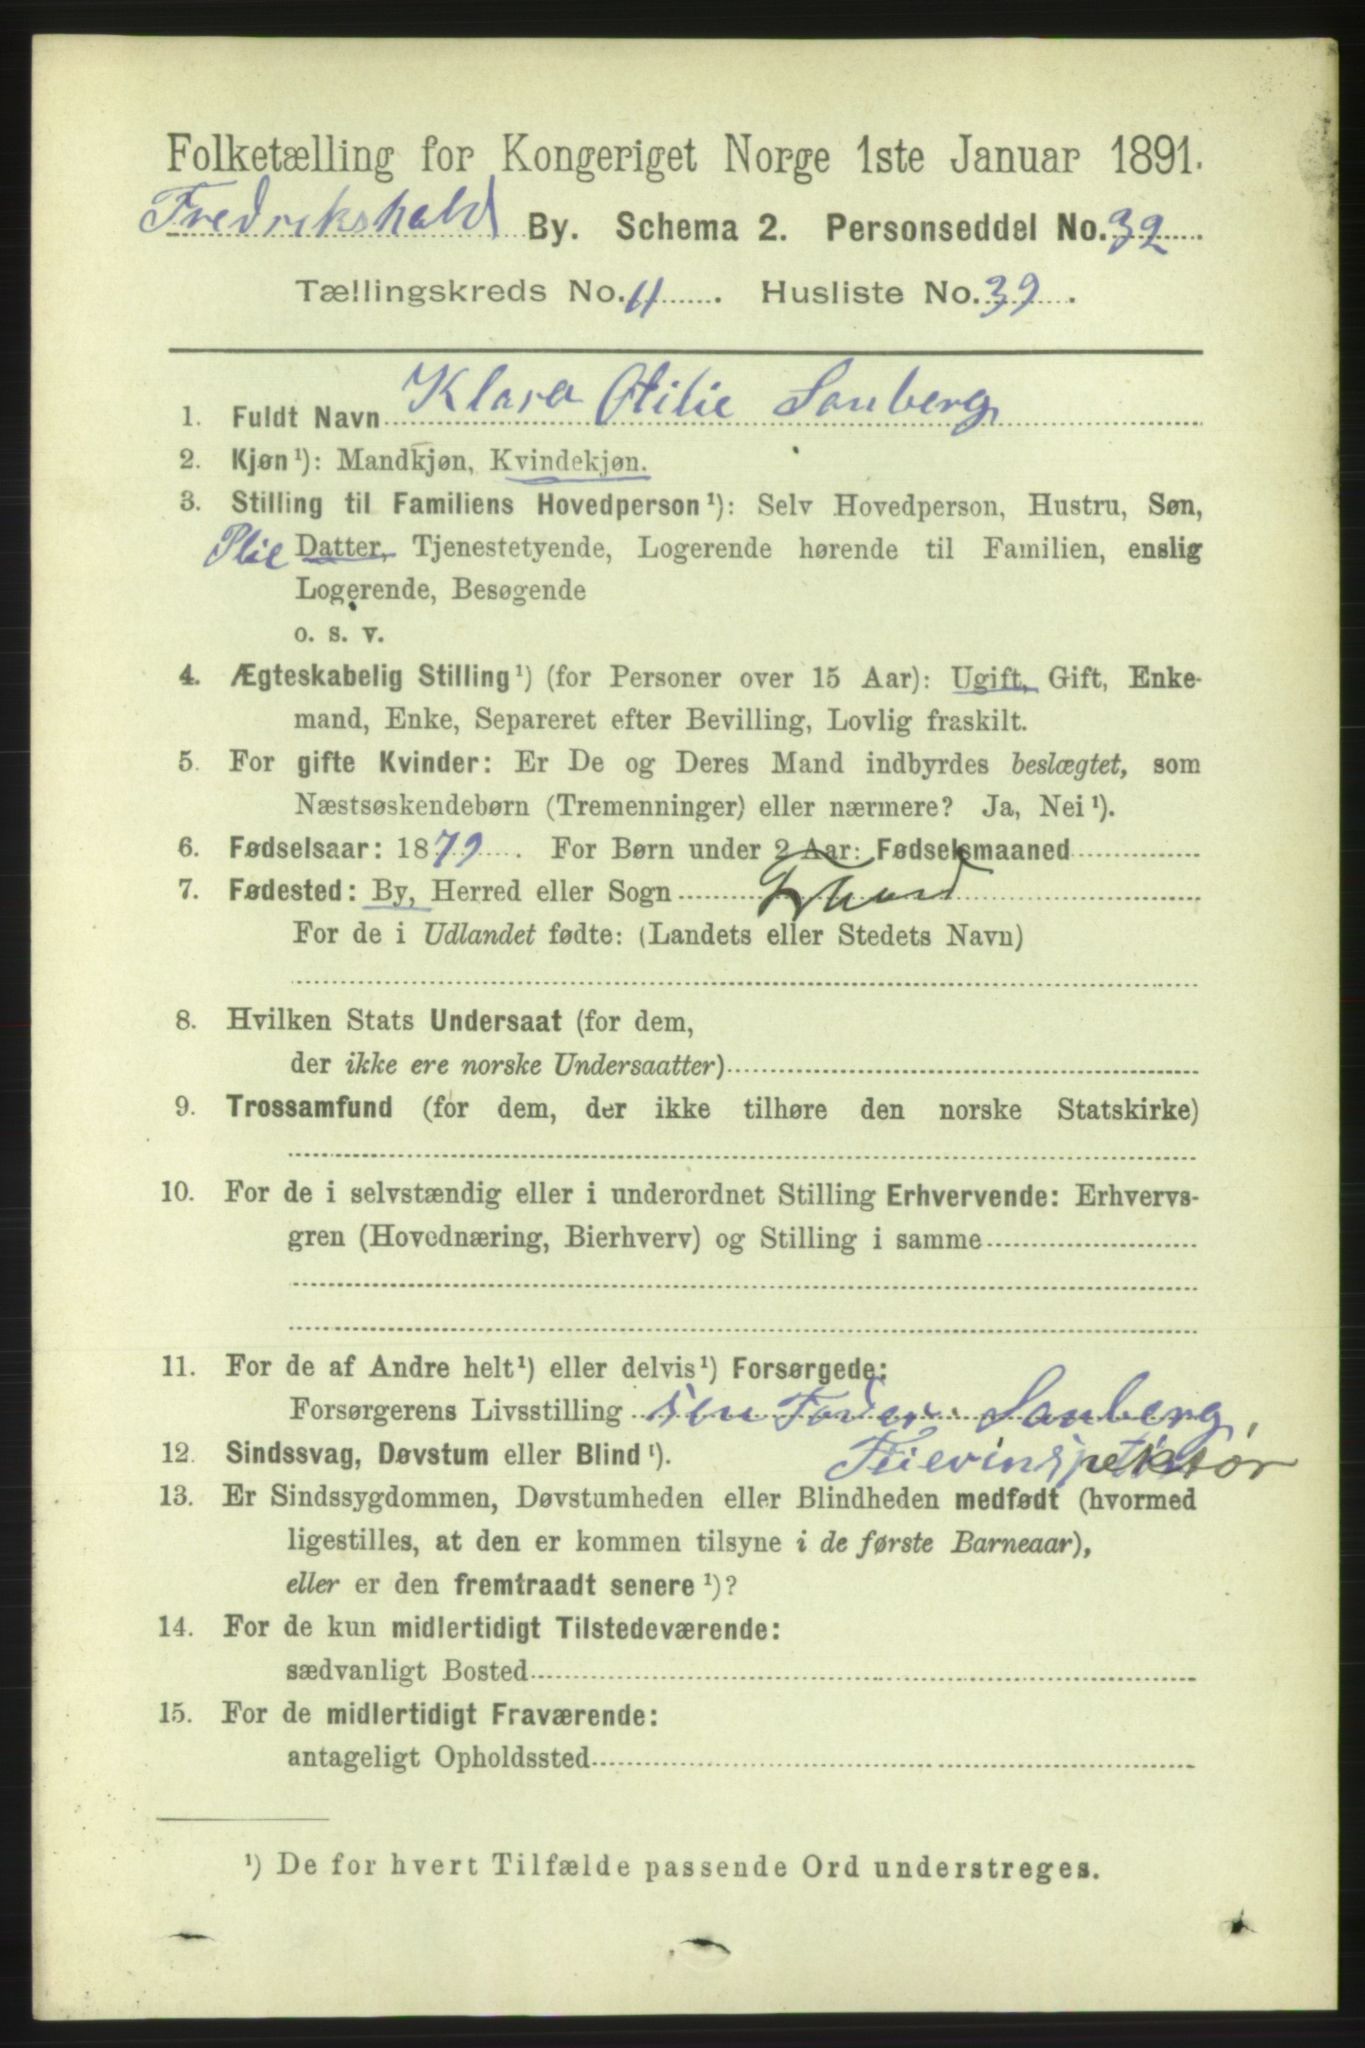 Folketælling for Kongeriget Norge 1ste Januar 1891.
Fredrikshald By. Schema 2. Personseddel No. 32
Tællingskreds No. 11. Husliste No. 39.
1. Fuldt Navn Klara Otilie Sanberg
2. Kjøn¹): Mandkjøn, Kvindekjøn.
3. Stilling til Familiens Hovedperson¹): Selv Hovedperson, Hustru, Søn,
Plie Datter, Tjenestetyende, Logerende hørende til Familien, enslig
Logerende, Besøgende
o. s. v.
4. Ægteskabelig Stilling¹) (for Personer over 15 Aar): Ugift, Gift, Enke-
mand, Enke, Separeret efter Bevilling, Lovlig fraskilt.
5. For gifte Kvinder: Er De og Deres Mand indbyrdes beslægtet, som
Næstsøskendebørn (Tremenninger) eller nærmere? Ja, Nei¹).
6. Fødselsaar: 1879. For Børn under 2 Aar: Fødselsmaaned
7. Fødested: By, Herred eller Sogn
For de i Udlandet fødte: (Landets eller Stedets Navn)
8. Hvilken Stats Undersaat (for dem,
der ikke ere norske Undersaatter)
9. Trossamfund (for dem, der ikke tilhøre den norske Statskirke)
10. For de i selvstændig eller i underordnet Stilling Erhvervende: Erhvervs-
gren (Hovednæring, Bierhverv) og Stilling i samme
11. For de af Andre helt¹) eller delvis¹) Forsørgede:
Forsørgerens Livsstilling sin Fader Sanberg,
12. Sindssvag, Døvstum eller Blind¹). Feierinspektør
13. Er Sindssygdommen, Døvstumheden eller Blindheden medfødt (hvormed
ligestilles, at den er kommen tilsyne i de første Barneaar),
eller er den fremtraadt senere¹)?
14. For de kun midlertidigt Tilstedeværende:
sædvanligt Bosted
15. For de midlertidigt Fraværende:
antageligt Opholdssted
¹) De for hvert Tilfælde passende Ord understreges.